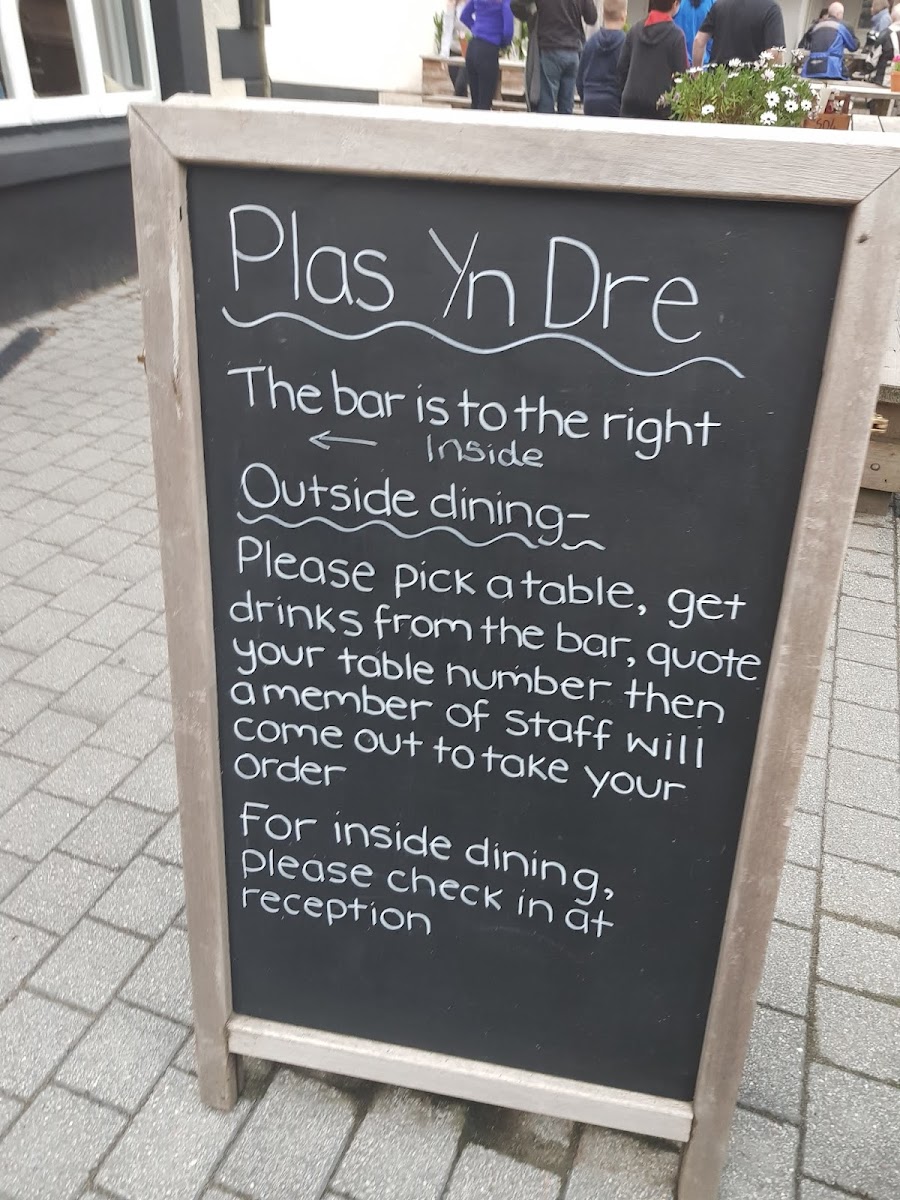 Plas Yn Dre
The bar is to the right
← Inside
Outside dining-
Please pick a table, get
drinks from the bar, quote
your table number then
a member of staff will
come out to take your
order
For inside dining,
please check in at
reception